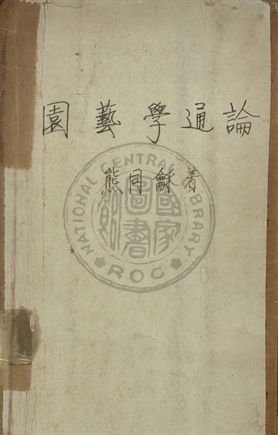 園藝學通論
熊同龢著
NATIONAL CENTRAL LIBRARY
國家圖書館
ROC